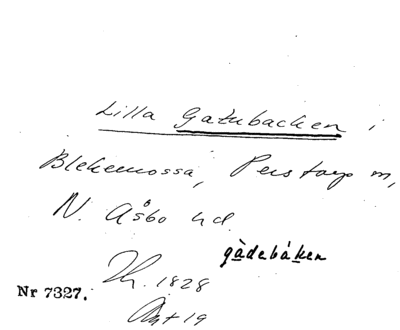 Lilla Gatubacken i
Blekemossa, Perstorp m,
N. Åsbo hd.
gàdebáken
Th. 1828
Nr 7327.
Ant 19